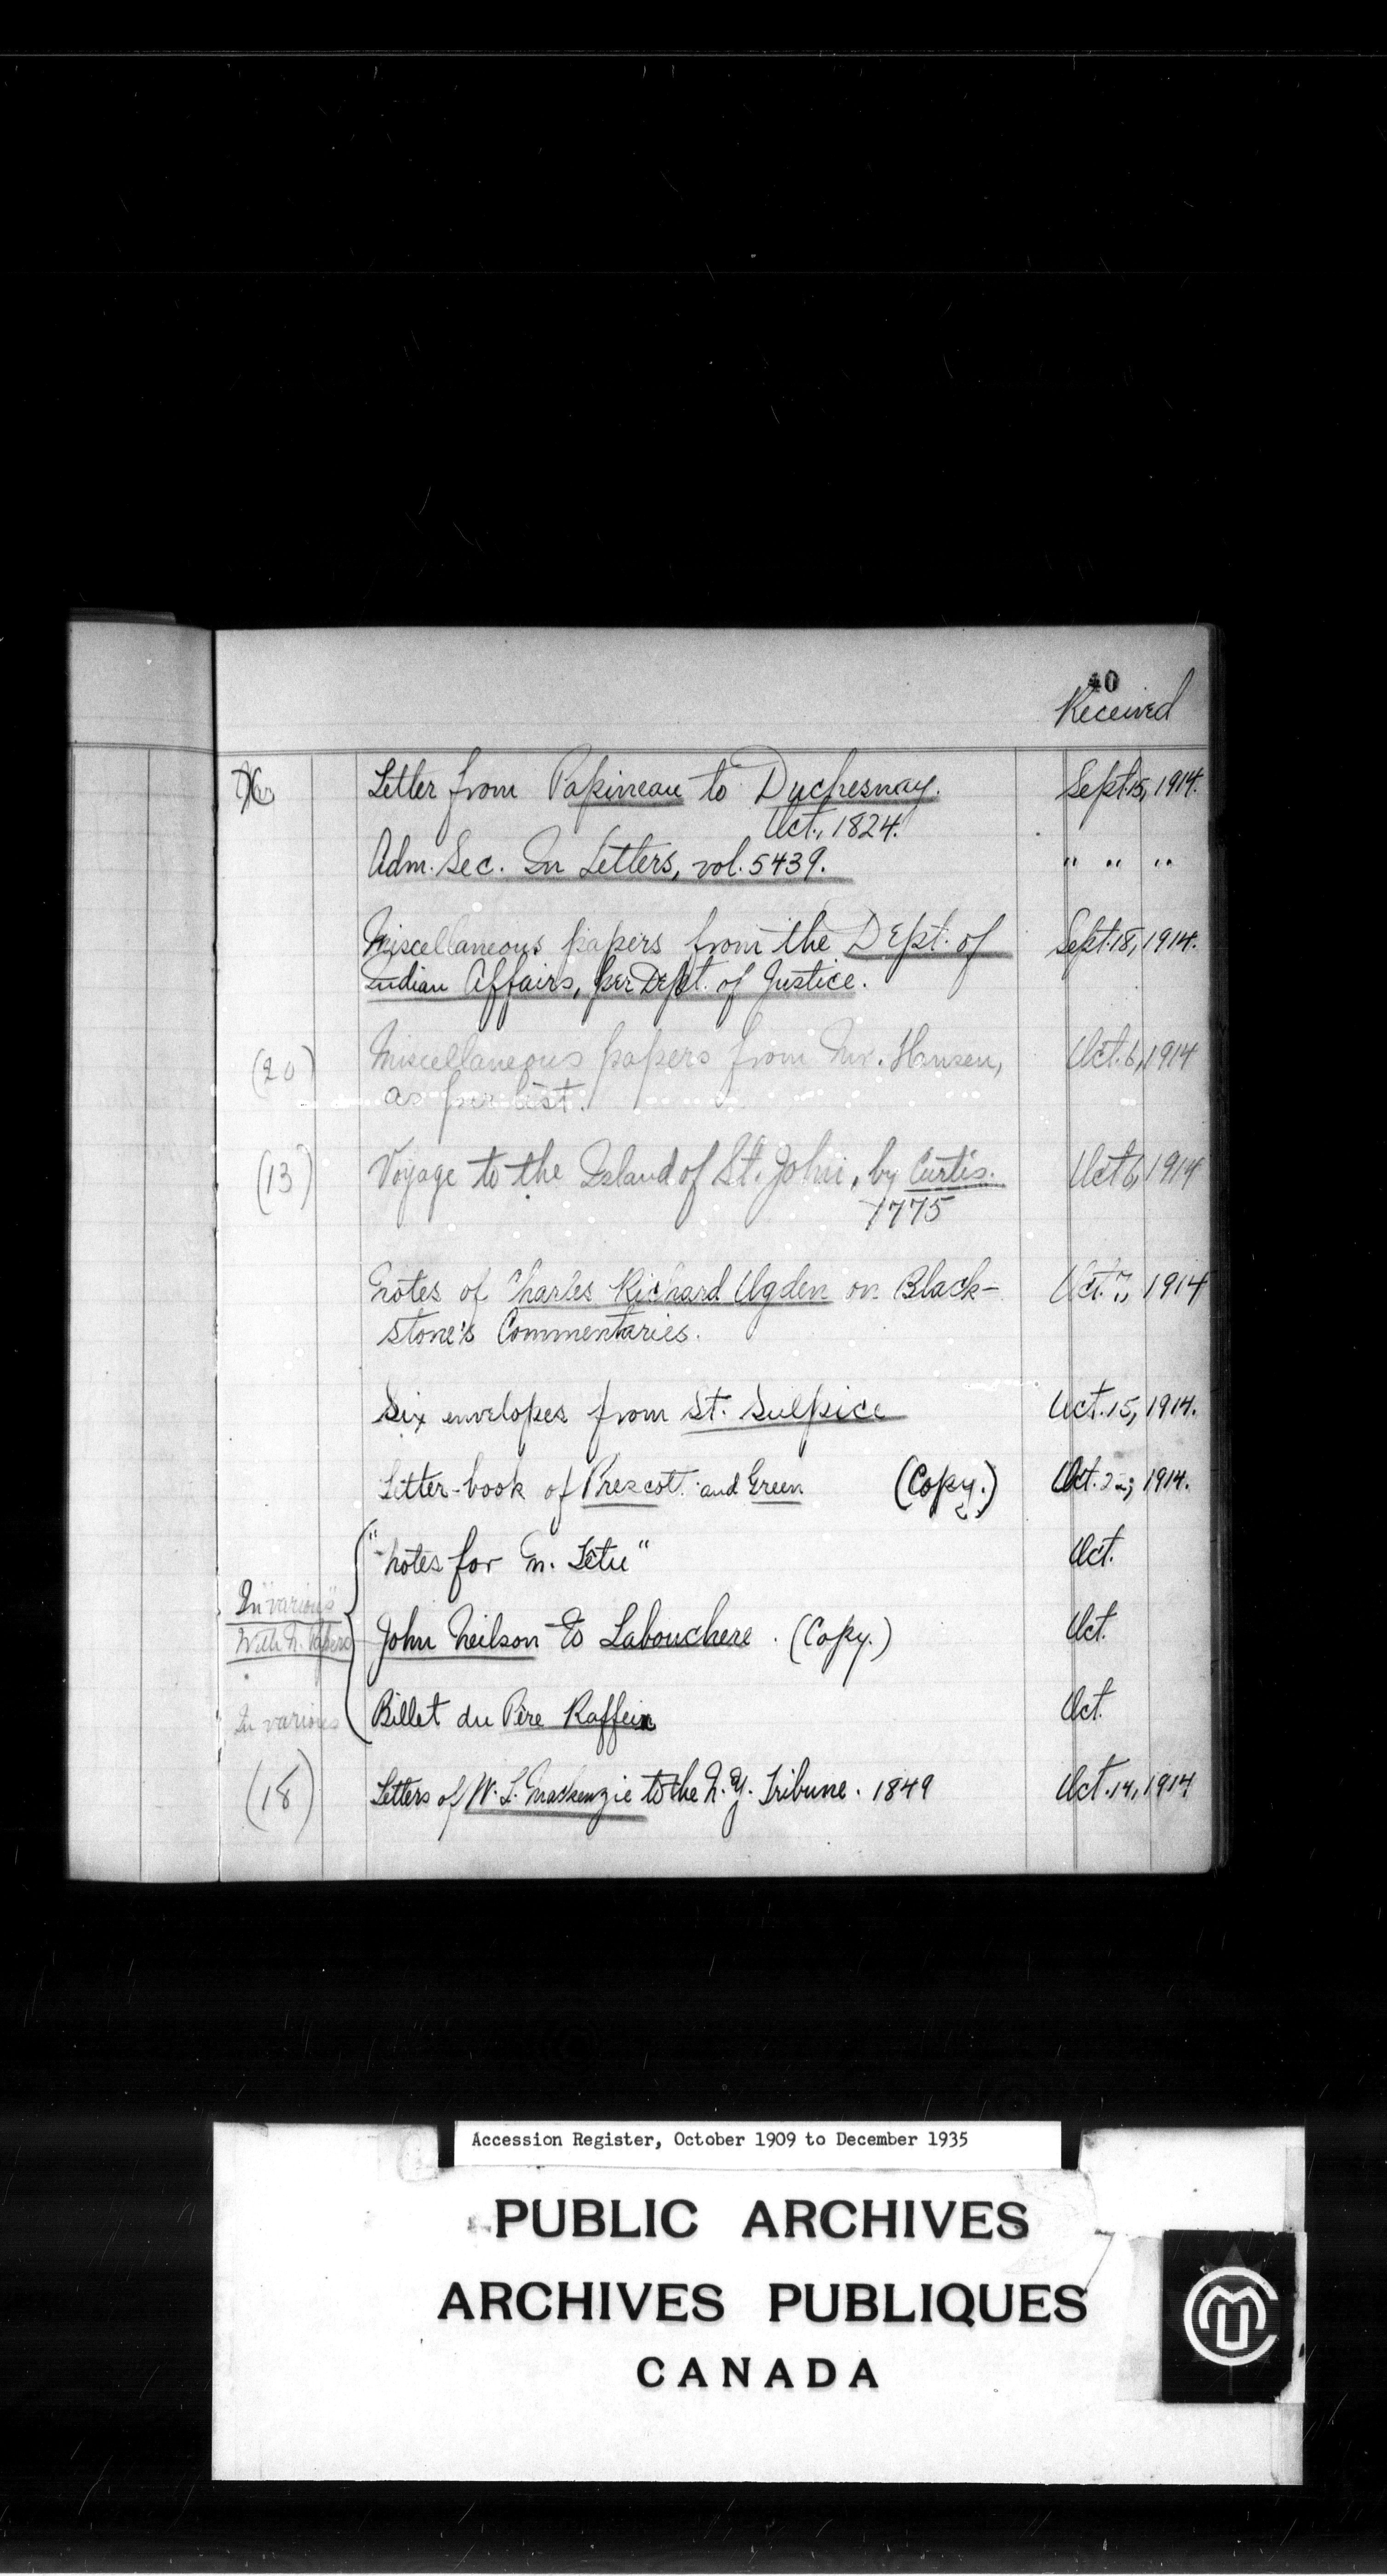 40
Received
Letter from Papineau to Duchesnay. Sept. 15, 1914.
Oct., 1824.
Adm. Sec. In Letters, vol. 5439. " " "
Miscellaneous papers from the Dept. of Sept. 18, 1914.
Indian Affairs, per Dept. of Justice.
(20) Miscellaneous papers from Mr. Hansen, Oct. 6, 1914
as per list.
(13) Voyage to the Island of St. John, by Curtis. Oct 6, 1914
1775
Notes of Charles Richard Ogden on Black- Oct. 7, 1914
stone's Commentaries.
Six envelopes from St. Sulpice Oct. 15, 1914.
Letter-book of Prescott and Green (Copy.) Oct. 1914.
"Notes for M. Têtu" Oct.
In "various"
With N. Papers John Neilson to Labouchere. (Copy.) Oct.
In various Billet du Père Raffeix Oct.
(18) Letters of W. L. Mackenzie to the N. Y. Tribune. 1849 Oct. 14, 1914.
Accession Register, October 1909 to December 1935
PUBLIC ARCHIVES
ARCHIVES PUBLIQUES
CANADA